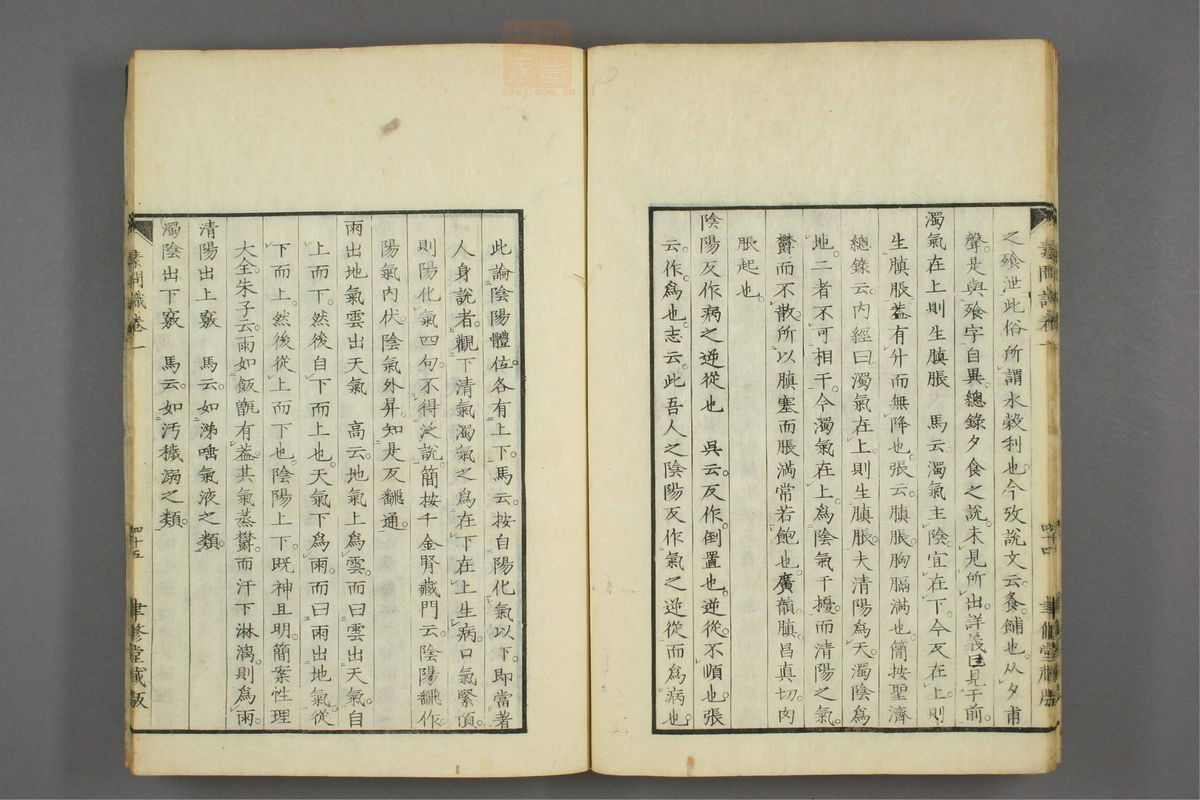 之飧泄此俗所謂水穀利也今攷說文云飧餔也从夕甫
聲是與飱字自異總錄夕食之說未見所出詳義已見于前
濁氣在上則生䐜脹　馬云濁氣主陰宜在下今反在上則
生䐜脹葢有升而無降也張云䐜脹胸膈滿也簡按聖濟
總錄云內經曰濁氣在上則生䐜脹夫清陽為天濁陰為
地二者不可相干今濁氣在上為陰氣干擾而清陽之氣
鬱而不散所以䐜塞而脹滿常若飽也廣韻䐜昌真切肉
脹起也
陰陽反作病之逆從也　吳云反作倒置也逆從不順也張
云作為也志云此吾人之陰陽反作氣之逆從而為病也
素問識卷一
四十四
聿修堂藏版
此論陰陽體位各有上下馬云按自陽化氣以下即當著
人身說者觀下清氣濁氣之為在下在上生病口氣緊頂
則陽化氣四句不得泛說簡按千金腎藏門云陰陽翻作
陽氣內伏陰氣外昇知是反翻通
雨出地氣雲出天氣　高云地氣上為雲而曰雲出天氣自
上而下然後自下而上也天氣下為雨而曰雨出地氣從
下而上然後從上而下也陰陽上下既神且明簡案性理
大全朱子云雨如飯甑有葢其氣蒸鬱而汗下淋漓則為雨
清陽出上竅　馬云如涕唾氣液之類
濁陰出下竅　馬云如汚穢溺之類
素問識卷一
四十五
聿修堂藏版